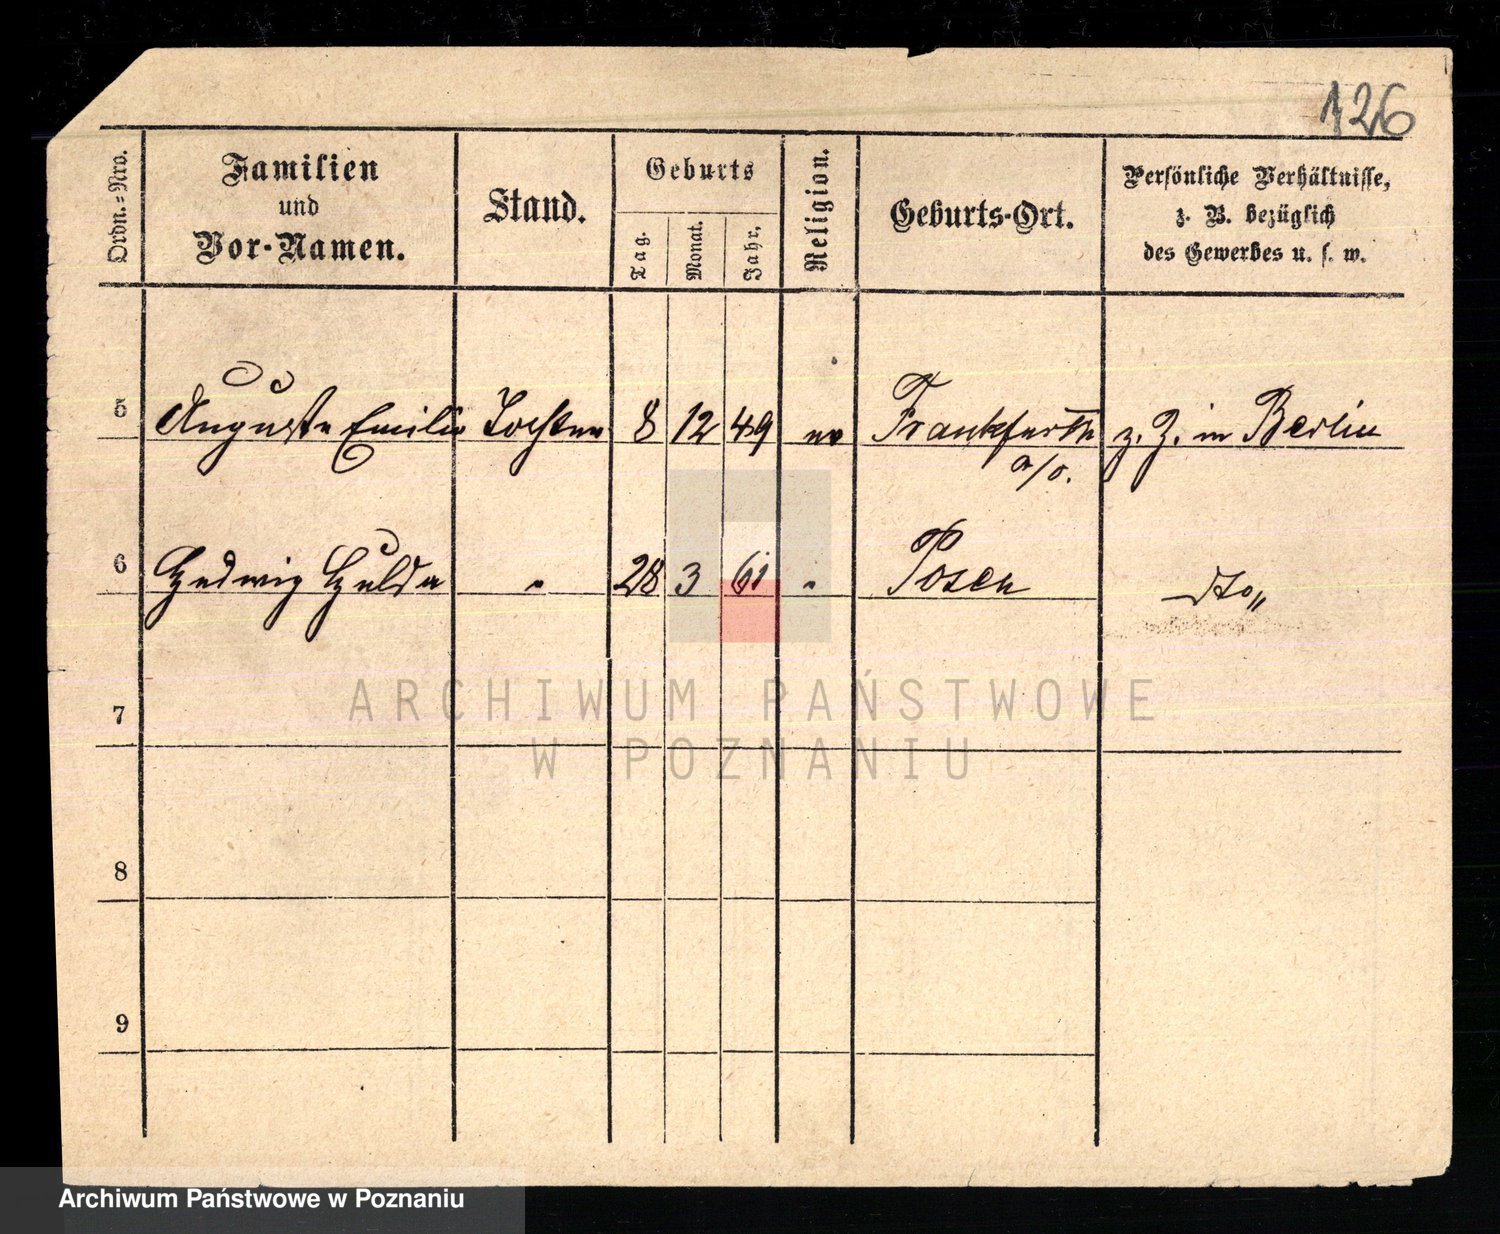 126
Ordn.-Nro.
Familien
und
Vor-Namen.
Stand.
Geburts
Tag.
Monat.
Jahr.
Religion.
Geburts-Ort.
Persönliche Verhältnisse,
z. B. bezüglich
des Gewerbes u. s. w.
5 Auguste Emilie Tochter 8 12 49 ev Frankfurth z. Z. in Berlin
a/o.
6 Hedwig Hulda " 28 3 61 " Posen dto "
ARCHIWUM PAŃSTWOWE
7
W POZNANIU
8
9
Archiwum Państwowe w Poznaniu